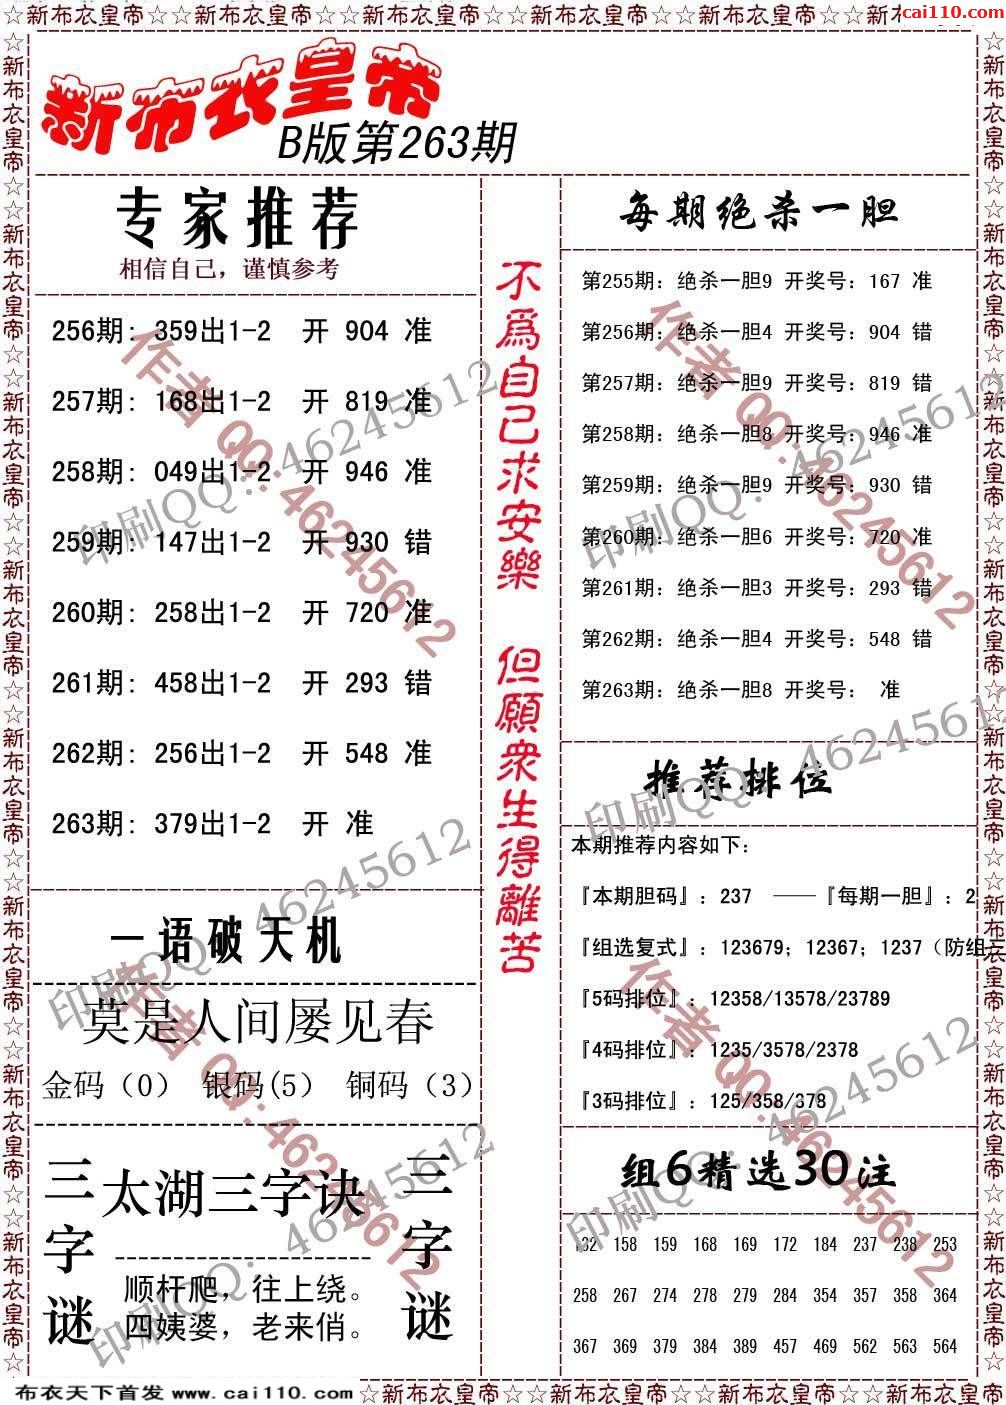 ☆新布衣皇帝☆新布衣皇帝☆新布衣皇帝☆新布衣皇帝☆新布衣皇帝☆新布衣皇帝☆新
cai110.com
新布衣皇帝
B版第263期
专家推荐
相信自己，谨慎参考
256期：359出1-2 开 904 准
257期：168出1-2 开 819 准
258期：049出1-2 开 946 准
259期：147出1-2 开 930 错
260期：258出1-2 开 720 准
261期：458出1-2 开 293 错
262期：256出1-2 开 548 准
263期：379出1-2 开 准
一语破天机
莫是人间屡见春
金码（0） 银码(5） 铜码（3）
三字谜
太湖三字诀
顺杆爬，往上绕。
四姨婆，老来俏。
三字谜
不為自己求安樂 但願衆生得離苦
每期绝杀一胆
第255期：绝杀一胆9 开奖号：167 准
第256期：绝杀一胆4 开奖号：904 错
第257期：绝杀一胆9 开奖号：819 错
第258期：绝杀一胆8 开奖号：946 准
第259期：绝杀一胆9 开奖号：930 错
第260期：绝杀一胆6 开奖号：720 准
第261期：绝杀一胆3 开奖号：293 错
第262期：绝杀一胆4 开奖号：548 错
第263期：绝杀一胆8 开奖号： 准
推荐排位
本期推荐内容如下：
『本期胆码』：237 ——『每期一胆』：2
『组选复式』：123679；12367；1237（防组三
『5码排位』：12358/13578/23789
『4码排位』：1235/3578/2378
『3码排位』：125/358/378
组6精选30注
132 158 159 168 169 172 184 237 238 253
258 267 274 278 279 284 354 357 358 364
367 369 379 384 389 457 469 562 563 564
作者 QQ：46245612
印刷QQ：46245612
作者 QQ：46245612
印刷QQ：46245612
印刷QQ：46245612
印刷QQ：46245612
作者 QQ：46245612
作者 QQ：46245612
印刷QQ：46245612
印刷QQ：46245612
布衣天下首发 www.cai110.com
☆新布衣皇帝☆新布衣皇帝☆新布衣皇帝☆新布衣皇帝☆